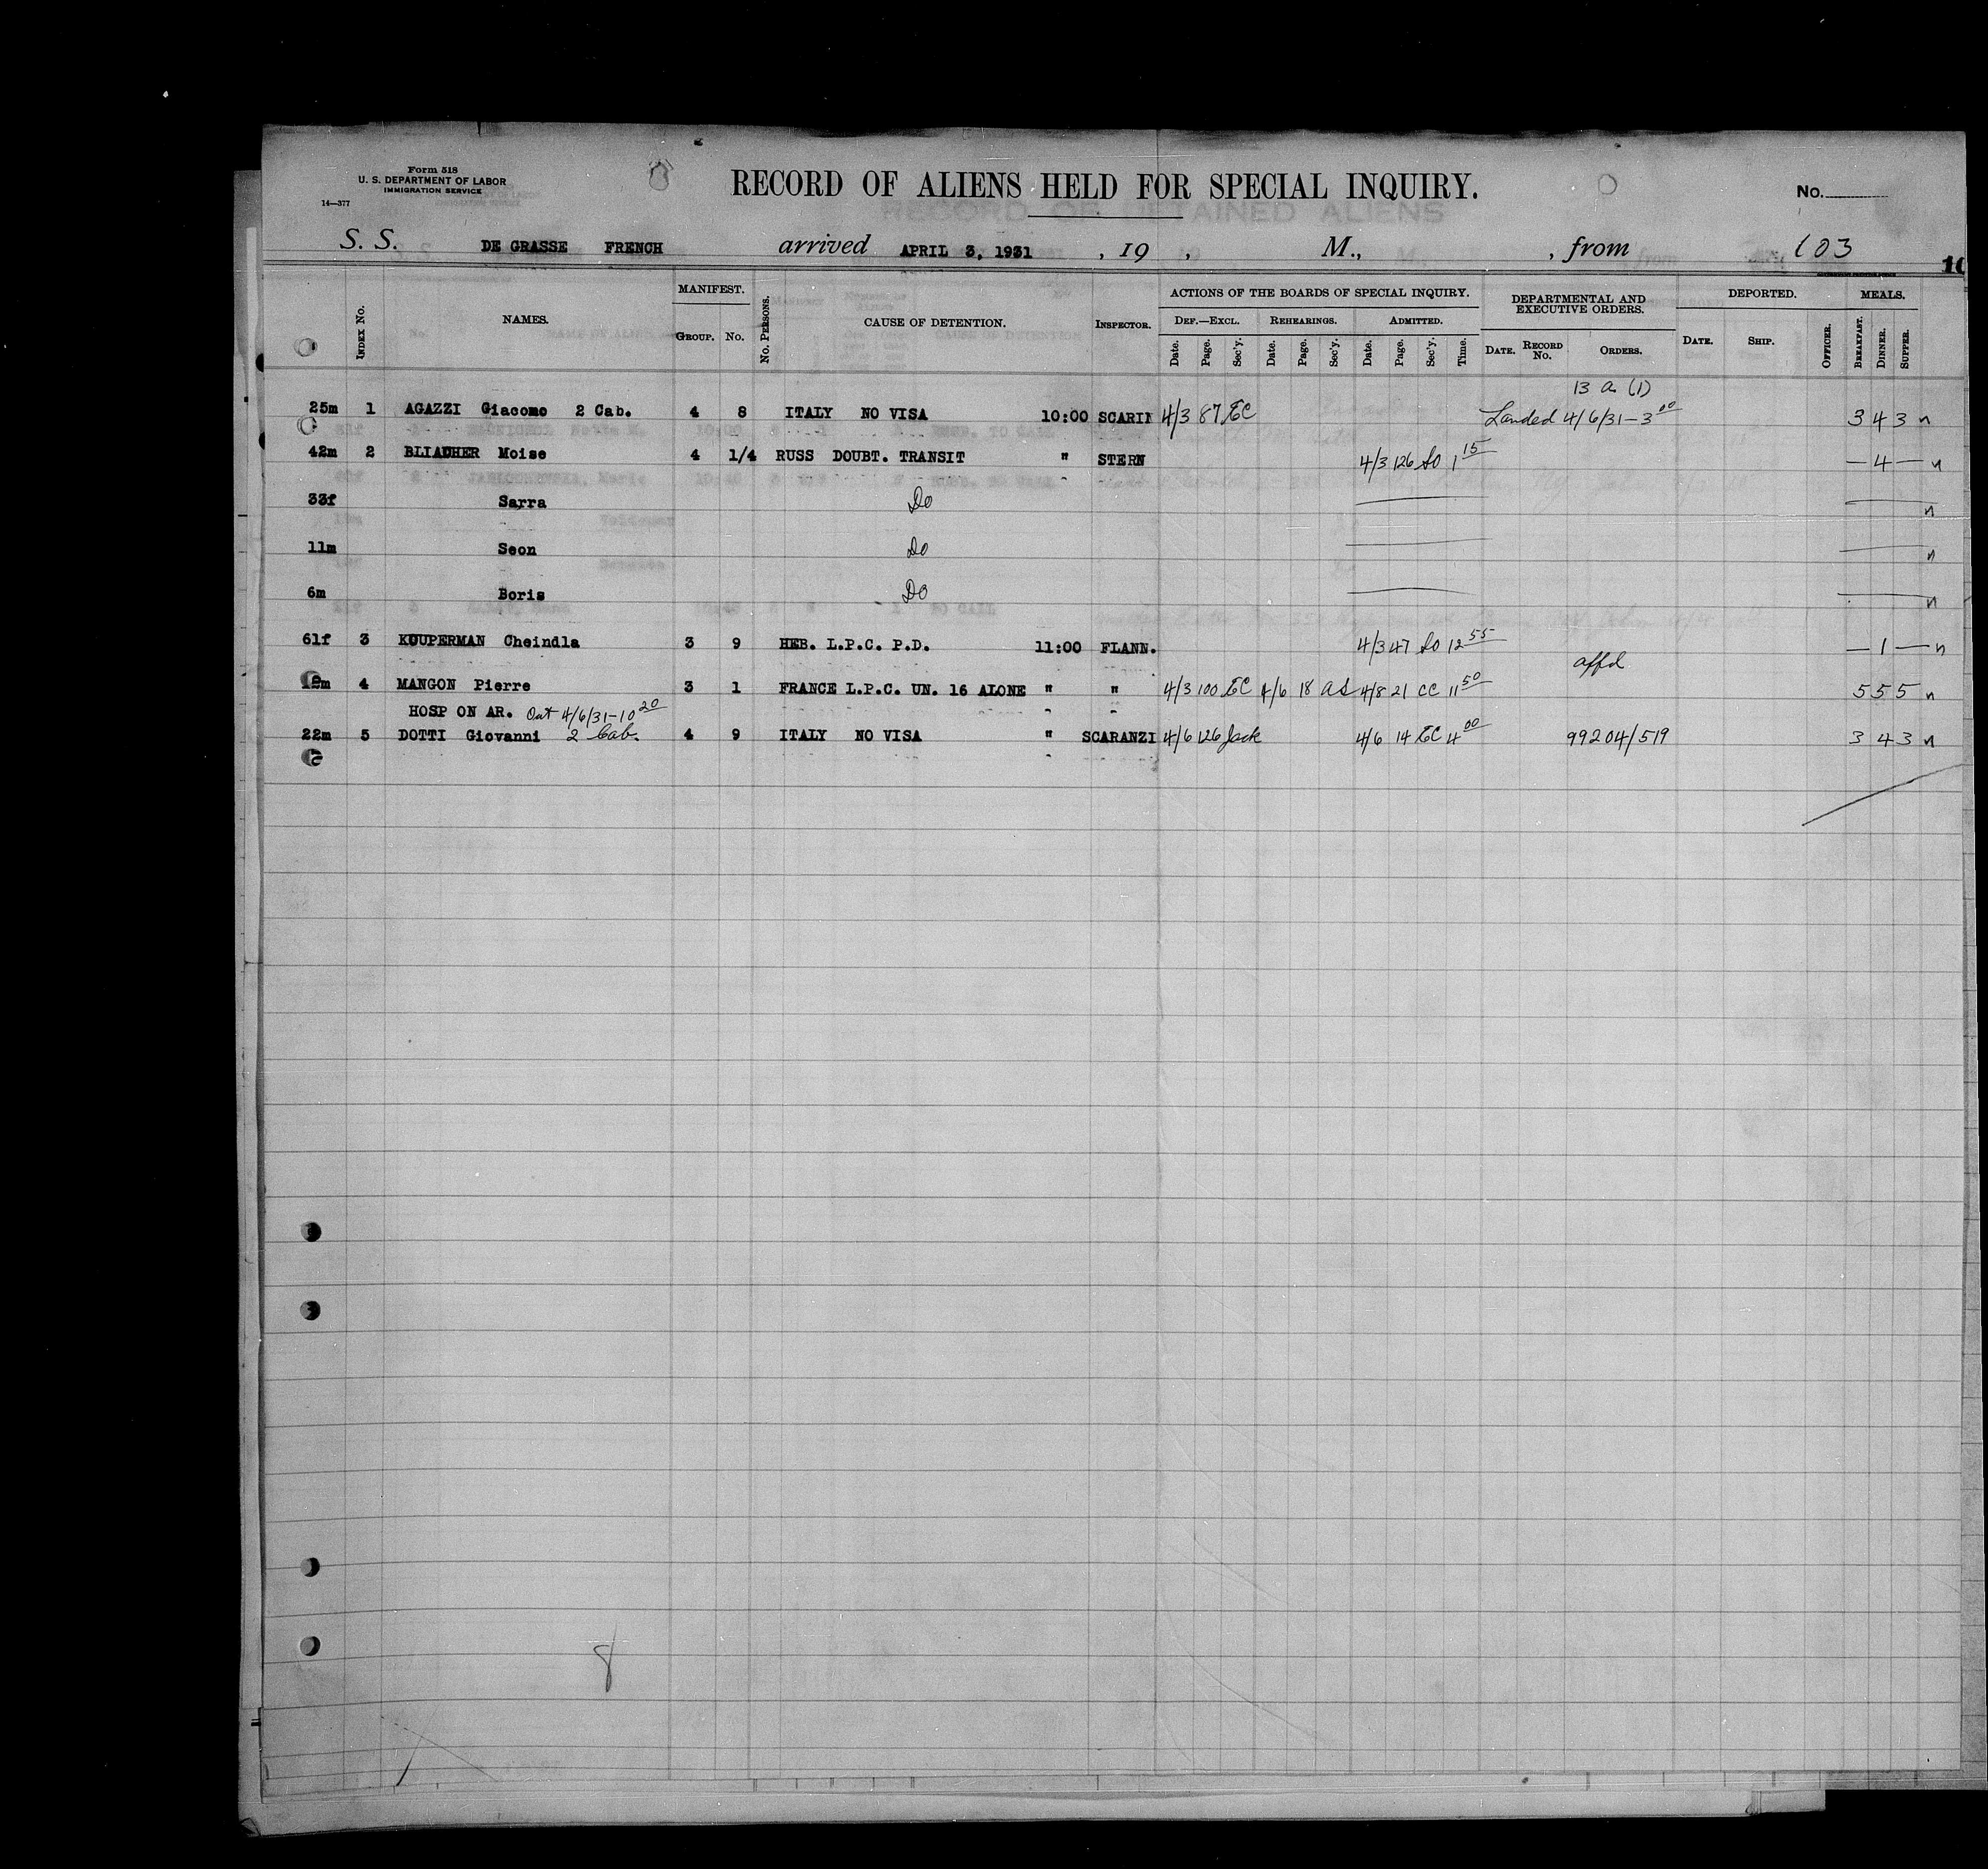 Form 518
U. S. DEPARTMENT OF LABOR
IMMIGRATION SERVICE
14—377
RECORD OF ALIENS HELD FOR SPECIAL INQUIRY.
No.
S. S. DE GRASSE FRENCH arrived APRIL 3, 1931 , 19 , M., , from 103
INDEX No. NAMES. MANIFEST. GROUP. No. No. PERSONS. CAUSE OF DETENTION. INSPECTOR. ACTIONS OF THE BOARDS OF SPECIAL INQUIRY. DEPARTMENTAL AND EXECUTIVE ORDERS. DEPORTED. MEALS.
DEF.—EXCL. REHEARINGS. ADMITTED.
Date. Page. Sec'y. Date. Page. Sec'y. Date. Page. Sec'y. Time. DATE. RECORD No. ORDERS. DATE. SHIP. OFFICER. BREAKFAST. DINNER. SUPPER.
13 a (1)
25m 1 AGAZZI Giacomo 2 Cab. 4 8 ITALY NO VISA 10:00 SCARIN 4/3 87 EC Landed 4/6/31-3 00 3 4 3 n
42m 2 BLIACHER Moise 4 1/4 RUSS DOUBT. TRANSIT " STERN 4/3 126 SO 1 15 — 4 — n
33f Sarra Do n
11m Seon Do n
6m Boris Do n
61f 3 KOUPERMAN Cheindla 3 9 HEB. L.P.C. P.D. 11:00 FLANN. 4/3 47 SO 12 55 — 1 — n
affd
12m 4 MANGON Pierre 3 1 FRANCE L.P.C. UN. 16 ALONE " " 4/3 100 EC 4/6 18 AS 4/8 21 CC 11 50 5 5 5 n
HOSP ON AR. Out 4/6/31-10 20
22m 5 DOTTI Giovanni 2 Cab. 4 9 ITALY NO VISA " SCARANZI 4/6 126 Jack 4/6 14 EC 4 00 99204/519 3 4 3 n
8